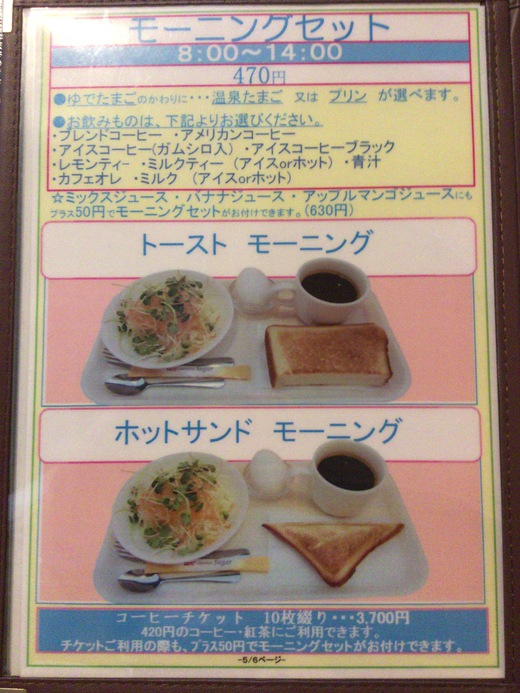 モーニングセット
8:00〜14:00
470円
●ゆでたまごのかわりに・・・温泉たまご 又は プリン が選べます。
●お飲みものは、下記よりお選びください。
・ブレンドコーヒー ・アメリカンコーヒー
・アイスコーヒー(ガムシロ入) ・アイスコーヒーブラック
・レモンティー ・ミルクティー (アイスorホット) ・青汁
・カフェオレ ・ミルク (アイスorホット)
☆ミックスジュース・バナナジュース・アップルマンゴジュースにも
プラス50円でモーニングセットがお付けできます。(630円)
トースト モーニング
ホットサンド モーニング
Sugar
コーヒーチケット 10枚綴り・・・3,700円
420円のコーヒー・紅茶にご利用できます。
チケットご利用の際も、プラス50円でモーニングセットがお付けできます。
-5/6ページ-